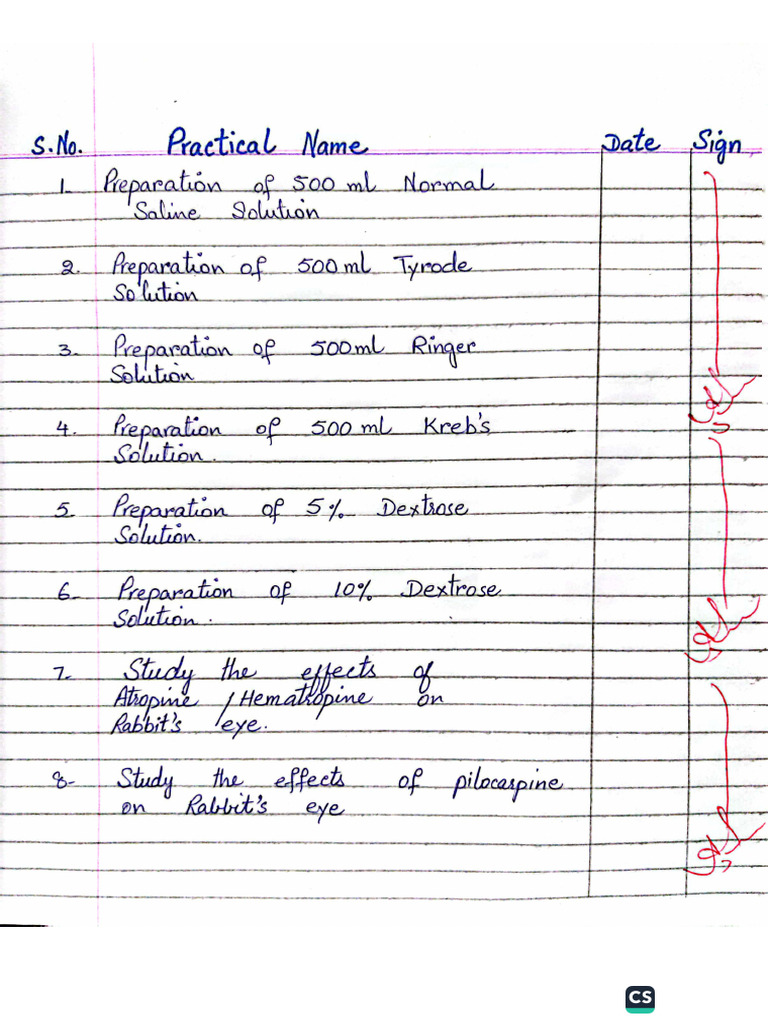 S.No. Practical Name Date Sign
1. Preparation of 500 ml Normal
Saline Solution
2. Preparation of 500ml Tyrode
Solution
3. Preparation of 500ml Ringer
Solution
4. Preparation of 500 ml Kreb's
Solution.
5. Preparation of 5% Dextrose
Solution.
6. Preparation of 10% Dextrose
Solution.
7. Study the effects of
Atropine / Hematropine on
Rabbit's eye.
8- Study the effects of pilocarpine
on Rabbit's eye
CS